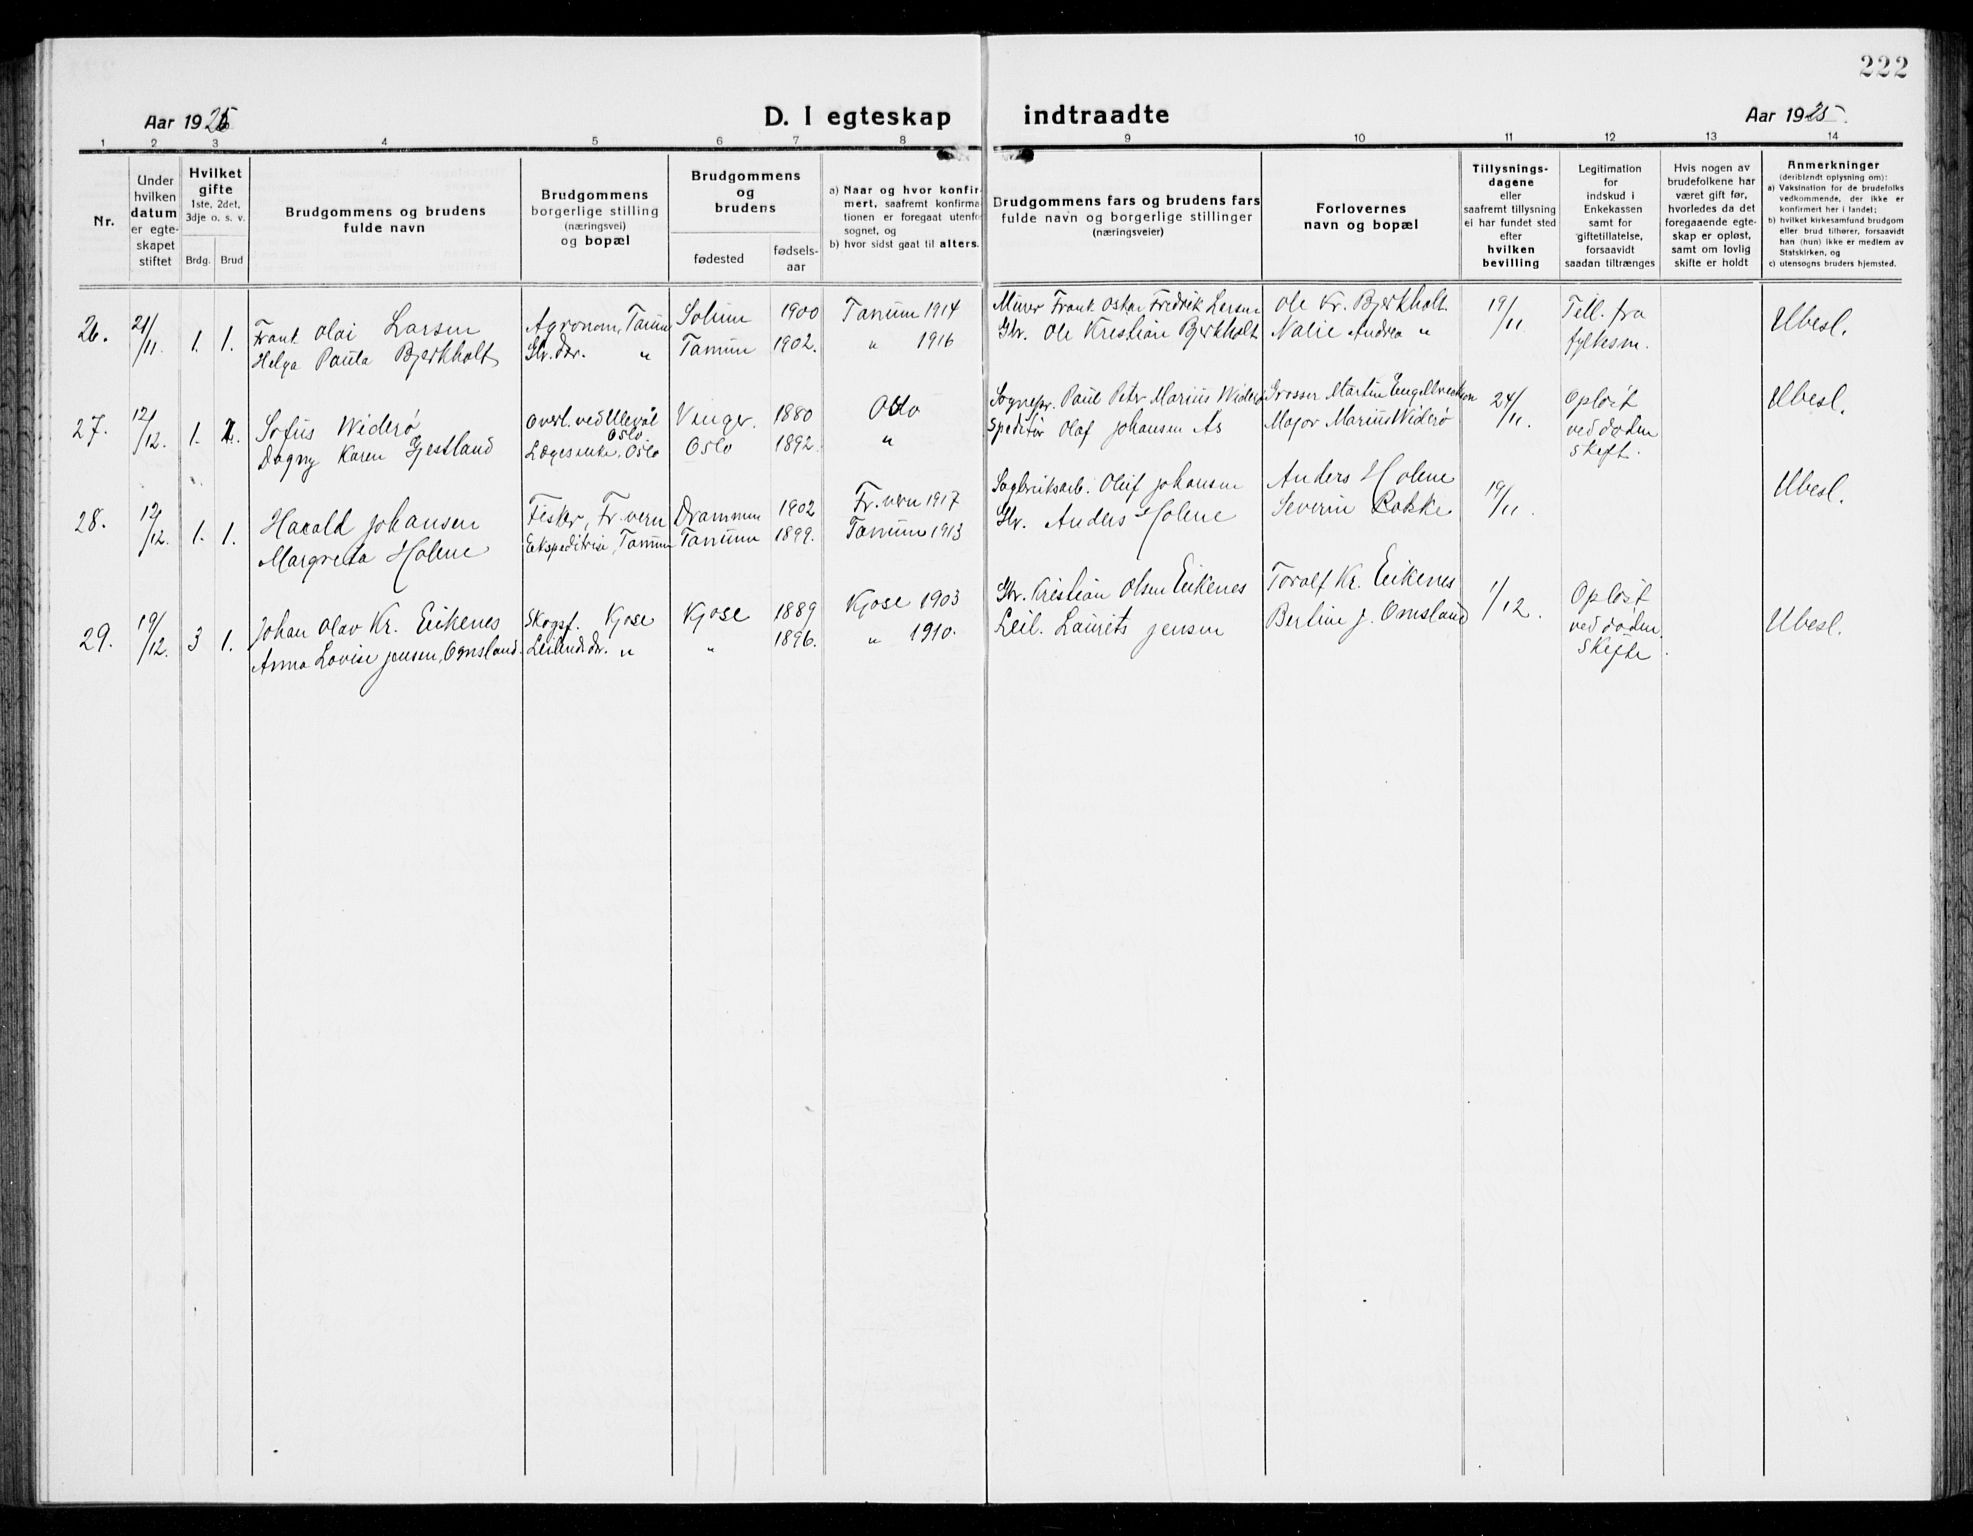 222
Aar 1925
D. I egteskap indtraadte
Aar 1925.
1 2 3 4 5 6 7 8 9 10 11 12 13 14
Nr.
Under
hvilken
datum
er egte-
skapet
stiftet
Hvilket
gifte
1ste, 2det,
3dje o. s. v.
Brdg. Brud
Brudgommens og brudens
fulde navn
Brudgommens
borgerlige stilling
(næringsvei)
og bopæl
Brudgommens
og
brudens
fødested
fødsels-
aar
a) Naar og hvor konfir-
mert, saafremt konfirma-
tionen er foregaat utenfo
sognet, og
b) hvor sidst gaat til alters.
Brudgommens fars og brudens fars
fulde navn og borgerlige stillinger
(næringsveier)
Forlovernes
navn og bopæl
Tillysnings-
dagene
eller
saafremt tillysning
ei har fundet sted
efter
hvilken
bevilling
Legitimation
for
indskud i
Enkekassen
samt for
giftetillatelse,
forsaavidt
saadan tiltrænges
Hvis nogen av
brudefolkene har
været gift før,
hvorledes da det
foregaaende egte-
skap er opløst,
samt om lovlig
skifte er holdt
Anmerkninger
(deriblandt oplysning om):
a) Vaksination for de brudefolks
vedkommende, der ikke er
konfirmert her i landet;
b) hvilket kirkesamfund brudgom
eller brud tilhører, forsaavidt
han (hun) ikke er medlem av
Statskirken, og
c) utensogns bruders hjemsted.
26. 21/11. 1. 1. Frank Olai Larsen Agronom, Tanum Solum 1900 Tanum 1914 Murer Frank Oskar Fredrik Larsen Ole Kr. Bjerkholt 19/11 Till. fra Ubesl.
Helga Paula Bjerkholt Gbr. dtr. " Tanum 1902. " 1916 Gbr. Ole Kristian Bjerkholt Nalie Andrea " fylkesm.
27. 12/12. 1. Sofus Widerø Overl. ved Ulevål Oslo Vinger. 1880 Oslo Sognepr. Paul Peter Marius Widerø Grosser Martin 24/11. Opløst Ubesl.
Dagny Karen Gjestland Oslo Oslo 1892. " Speditør Olaf Johansen As Major Marius Widerø ved døden
skift.
28. 12/12. 1. 1. Harald Johansen Fisker, Fr.vern Drammen 1902 Fr.vern 1917 Sagbruksarb. Oluf Johansen Anders Holene 19/11. Ubesl.
Margreta Holene Ekspeditrise, Tanum Tanum 1899. Tanum 1913 Gbr. Anders Holene Severin Bakke
29. 19/12. 3 1. Johan Olav Kr. Eikenes Skogsf. Kjose Kjose 1889 Kjose 1903 Gbr. Kristian Olsen Eikenes Toralf Kr. Eikenes 1/12. Opløst Ubesl.
Anna Lovise Jensen, Omsland. Leilend.dr. " " 1896. " 1910. Leil. Laurits Jensen Bertine J. Omsland ved døden.
Skifte